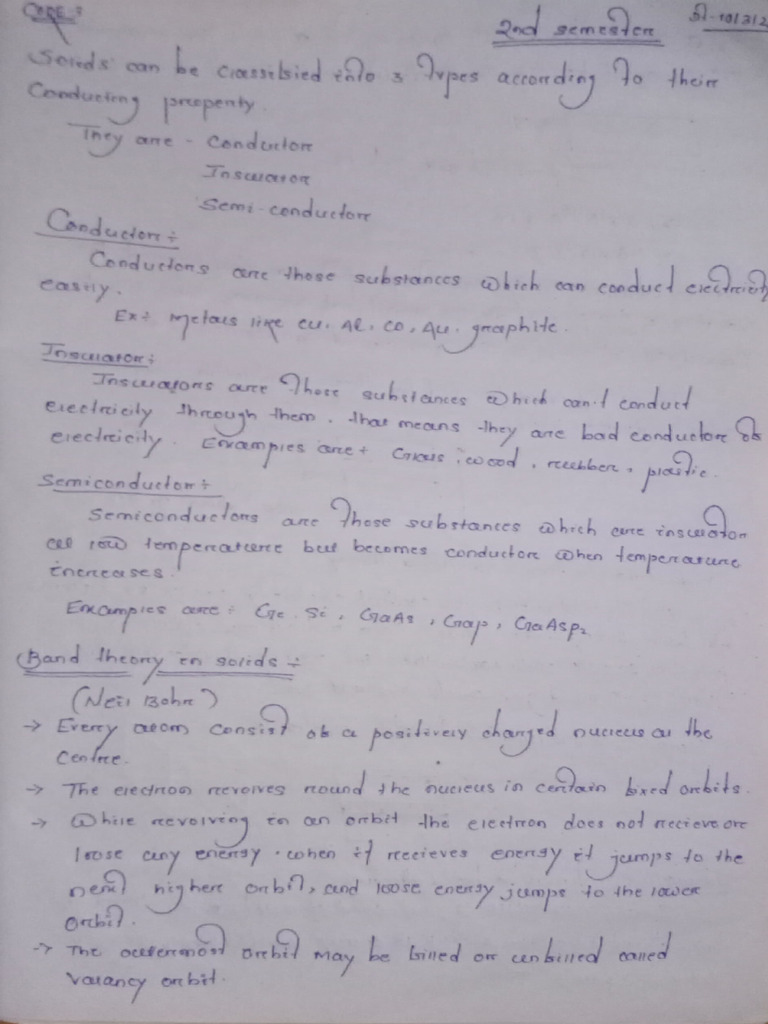 CORE-3
2nd semester
dt-10/3/2
Solids can be classified into 3 types according to their
Conducting property.
They are - Conductor
Insulator
Semi-conductor
Conductor :-
Conductors are those substances which can conduct electricity
easily.
Ex: Metals like Cu. Al. CO, Au. graphite.
Insulator:
Insulators are those substances which can't conduct
electricity through them. that means they are bad conductor of
electricity. Examples are: Glass, wood, rubber, plastic.
Semiconductor :-
Semiconductors are those substances which are insulator
at low temperature but becomes conductor when temperature
increases.
Examples are : Ge. Si, GaAs, Gap, GaAsP2
Band theory in solids :-
(Neil Bohr)
→ Every atom consist of a positively charged nucleus at the
centre.
→ The electron revolves round the nucleus in certain fixed orbits.
→ While revolving in an orbit the electron does not recieve or
loose any energy. when it recieves energy it jumps to the
next higher orbit, and loose energy jumps to the lower
orbit.
→ The outermost orbit may be filled or unfilled called
valancy orbit.